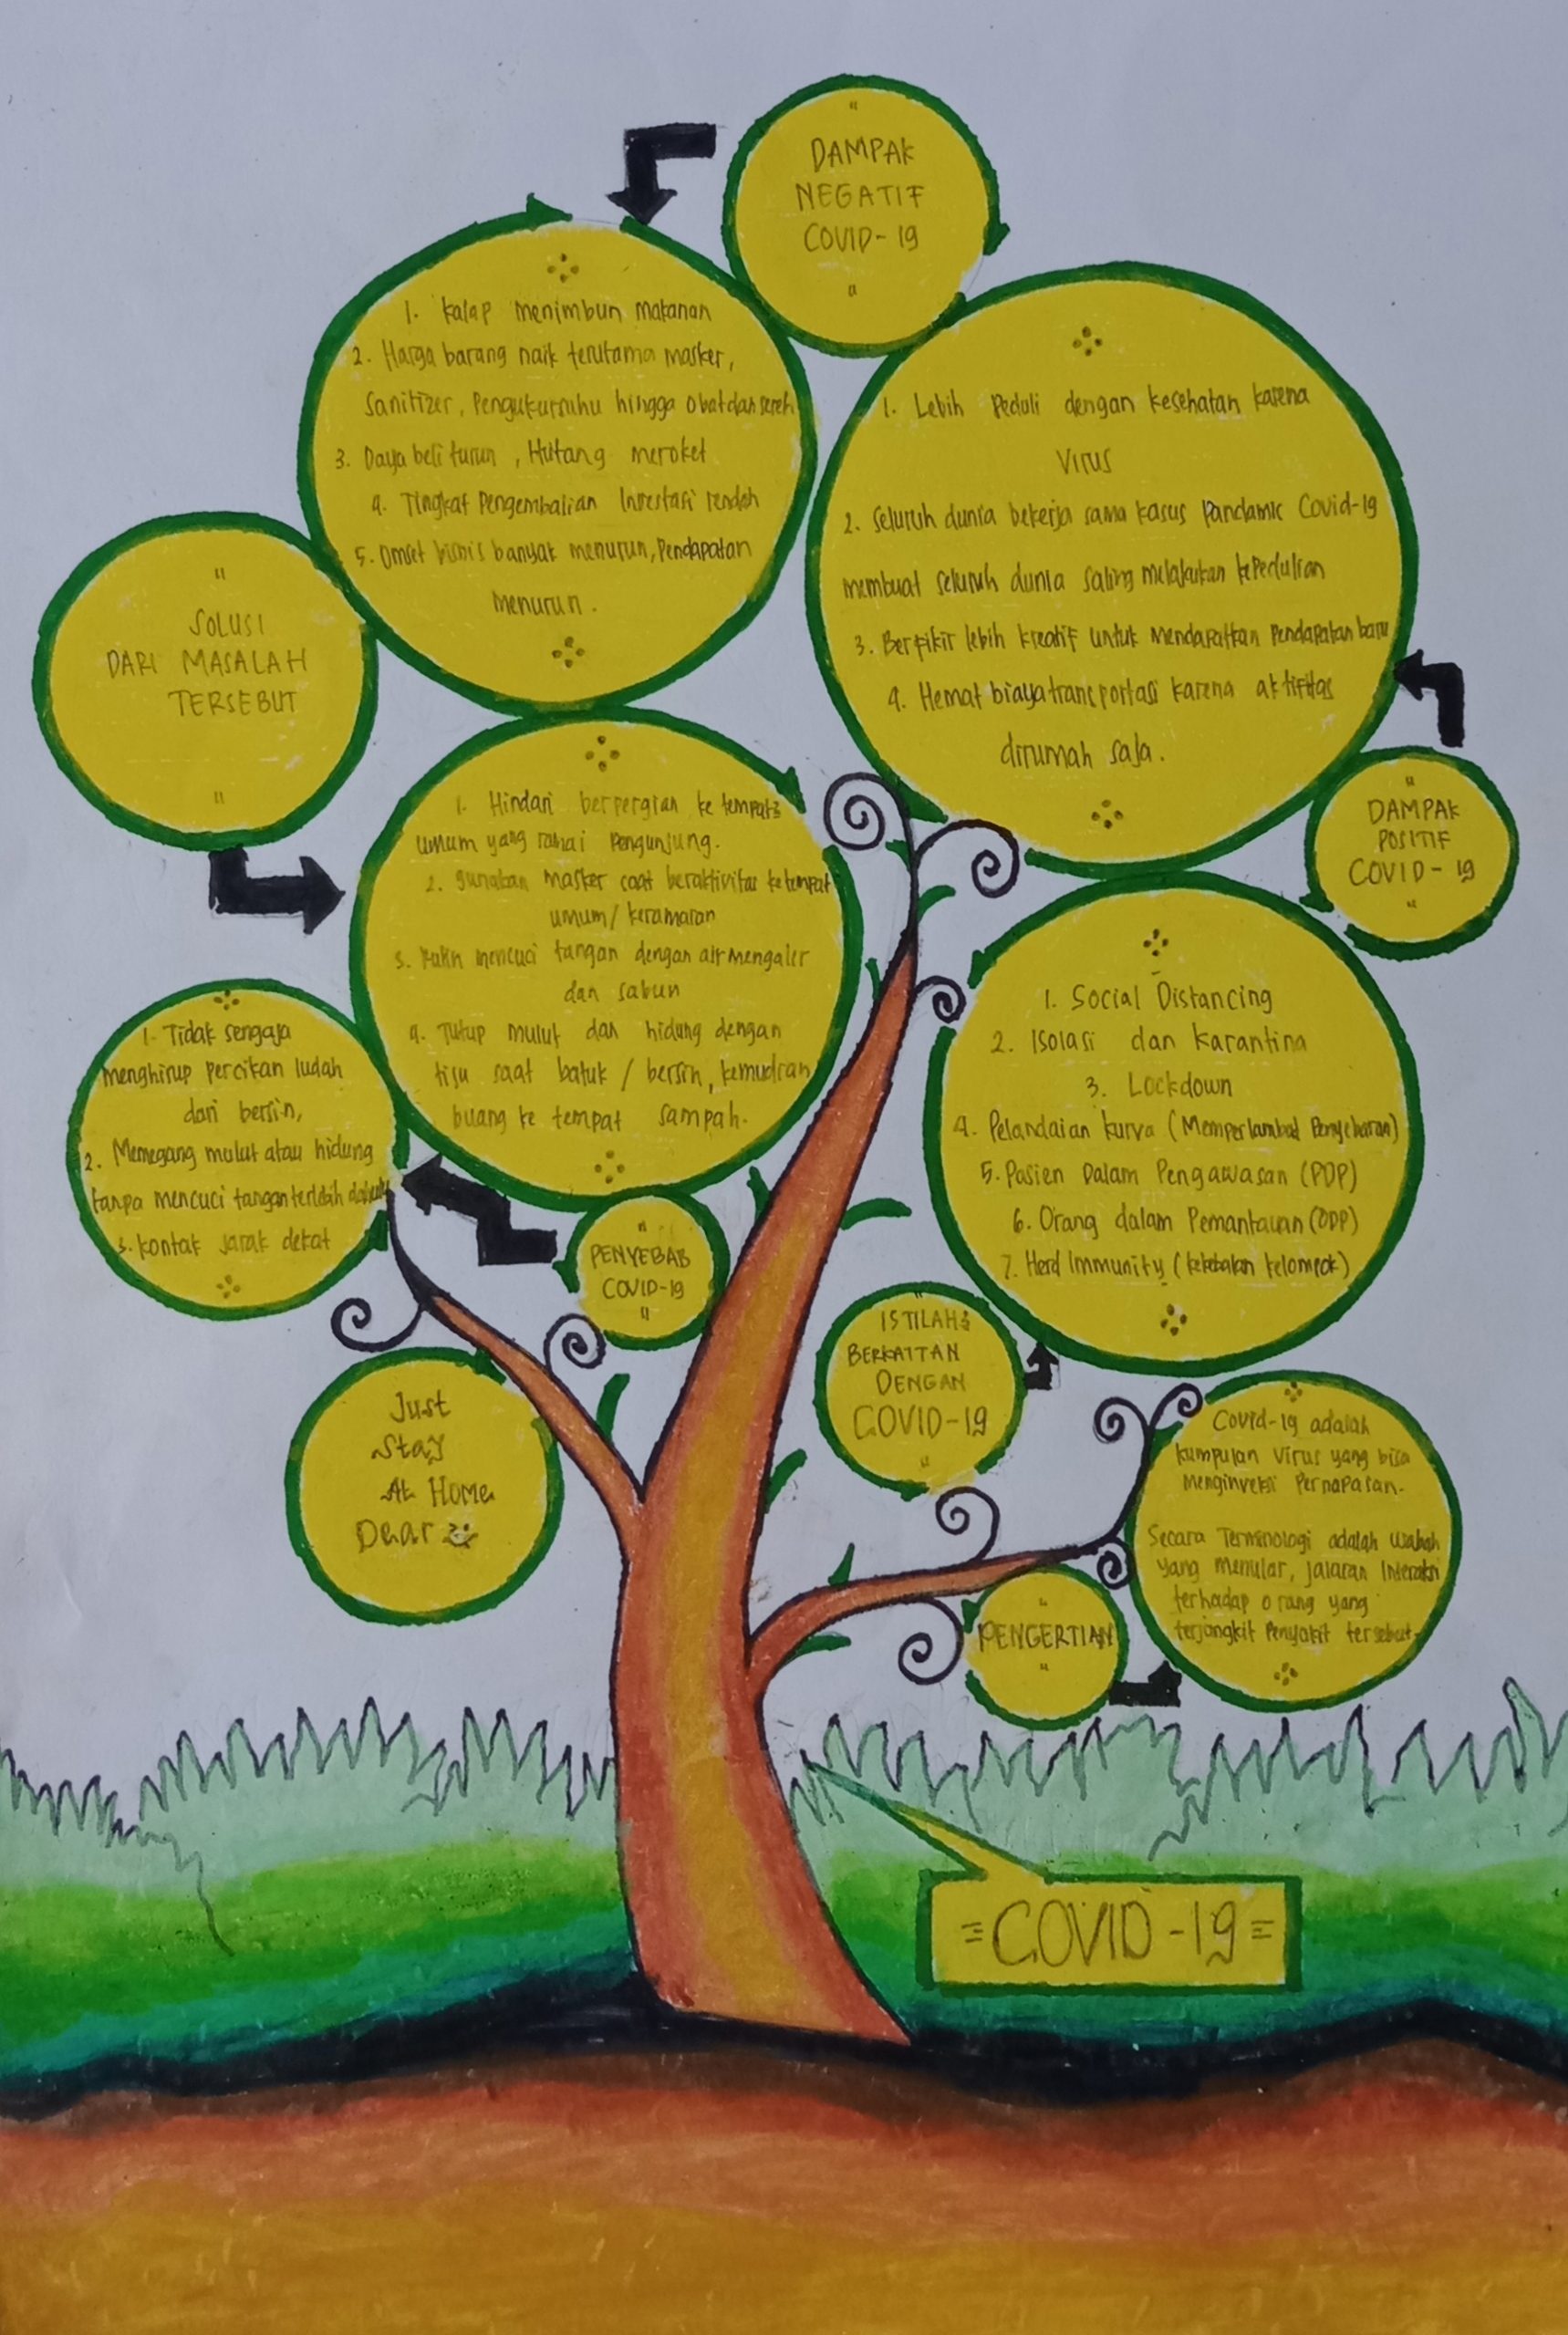 DAMPAK
NEGATIF
COVID-19
1. Kalap menimbun makanan
2. Harga barang naik terutama masker,
Sanitizer, Pengukursuhu hingga obatdan sereh
3. Daya beli turun, Hutang meroket
4. Tingkat Pengembalian Investasi rendah
5. Omset bisnis banyak menurun, Pendapatan
menurun.
1. Lebih Peduli dengan kesehatan karena
Virus
2. Seluruh dunia bekerja sama kasus Pandamic Covid-19
membuat seluruh dunia saling melakukan kePedulian
3. Berfikir lebih kreatif untuk mendapatkan Pendapatan baru
4. Hemat biaya transportasi karena aktifitas
dirumah saja.
DAMPAK
POSITIF
COVID-19
SOLUSI
DARI MASALAH
TERSEBUT
1. Hindari berpergian ke tempat2
umum yang ramai Pengunjung.
2. gunakan masker saat beraktivitas ketempat
umum/ keramaian
3. Rutin mencuci tangan dengan air mengalir
dan sabun
4. Tutup mulut dan hidung dengan
tisu saat batuk / bersin, kemudian
buang ke tempat sampah.
1. Tidak sengaja
menghirup percikan ludah
dari bersin,
2. Memegang mulut atau hidung
tanpa mencuci tangan terlebih dahulu
3. kontak jarak dekat
PENYEBAB
COVID-19
1. Social Distancing
2. Isolasi dan Karantina
3. Lockdown
4. Pelandaian kurva (Memperlambat Penyebaran)
5. Pasien Dalam Pengawasan (PDP)
6. Orang dalam Pemantauan (ODP)
7. Herd Immunity (kekebalan kelompok)
ISTILAH2
BERKAITAN
DENGAN
COVID-19
Just
Stay
At Home
Dear
PENGERTIAN
Covid-19 adalah
kumpulan Virus yang bisa
menginveksi Pernapasan.
Secara Terminologi adalah wabah
yang menular, jalaran Interaksi
terhadap orang yang
terjangkit Penyakit tersebut.
=COVID-19=